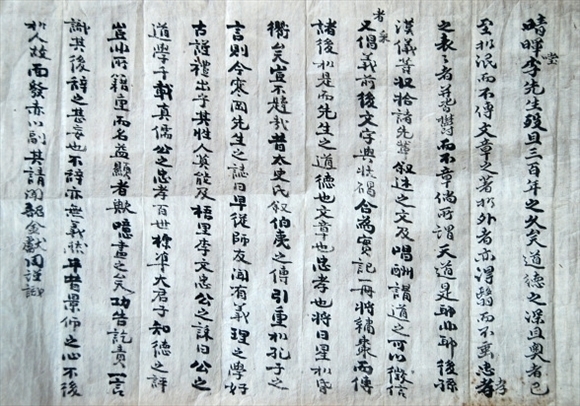 晴暉堂李先生歿且三百年之久矣道德之深且奧者已
至於泯而不傳文章之著於外者亦得翳而不垂忠孝
之表之者甚鬱而不章倘所謂天道是耶非耶後孫
漢儀等收拾諸先輩叙述之文及唱酬講道之可以徵信
者又倡義前後文字與狀碣合為實記一冊將鋟榟而傳
諸後於是而先生之道德也文章也忠孝也將日星於昏
衢矣豈不韙哉昔太史氏叙伯夷之傳引重於孔子之
言則今寒岡先生之誌曰早從師友淘有義理之學好
古謹禮出乎其性人莫能及梧里李文忠公之誄曰公之
道學千載真儒公之忠孝百世標準大君子知德之評
豈非所籍重而名益顯者歟噫盡之矣功告訖責一言
識其後辭之甚妄也不辭亦無義然平昔景仰之心不後
於人玆而發赤以副其請聞韶金獻周謹跋